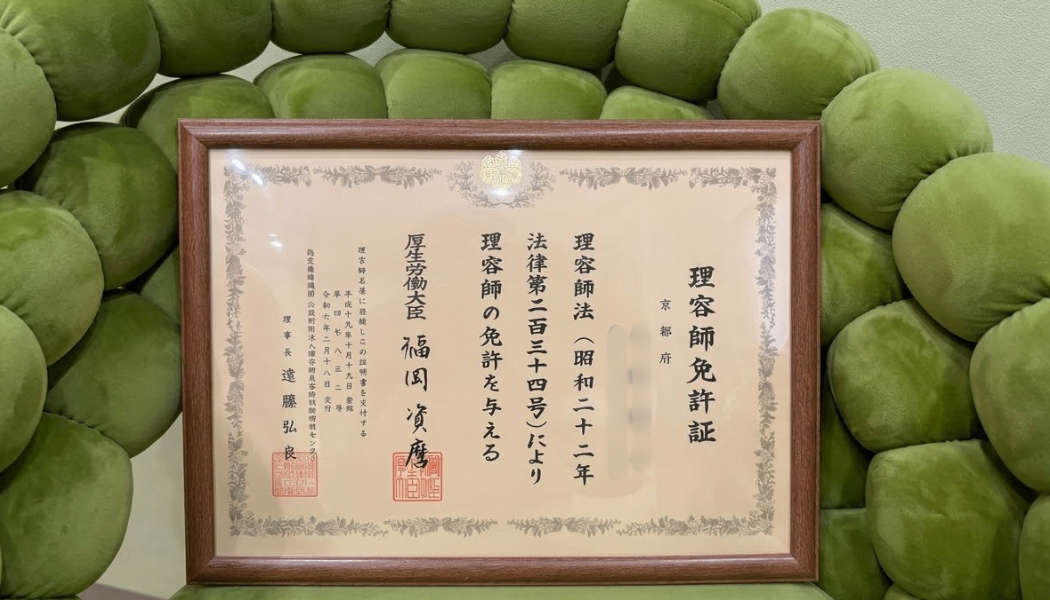 理容師免許証
京都府
理容師法(昭和二十二年
法律第二百三十四号)により
理容師の免許を与える
厚生労働大臣 福岡 資麿
理容師名簿に登録しこの証明書を交付する
平成十九年十月十九日 登録
第四七八三二号
令和六年 十八日 交付
指定登録機関 公益財団法人理容師美容師試験研修センター
理事長 遠藤弘良